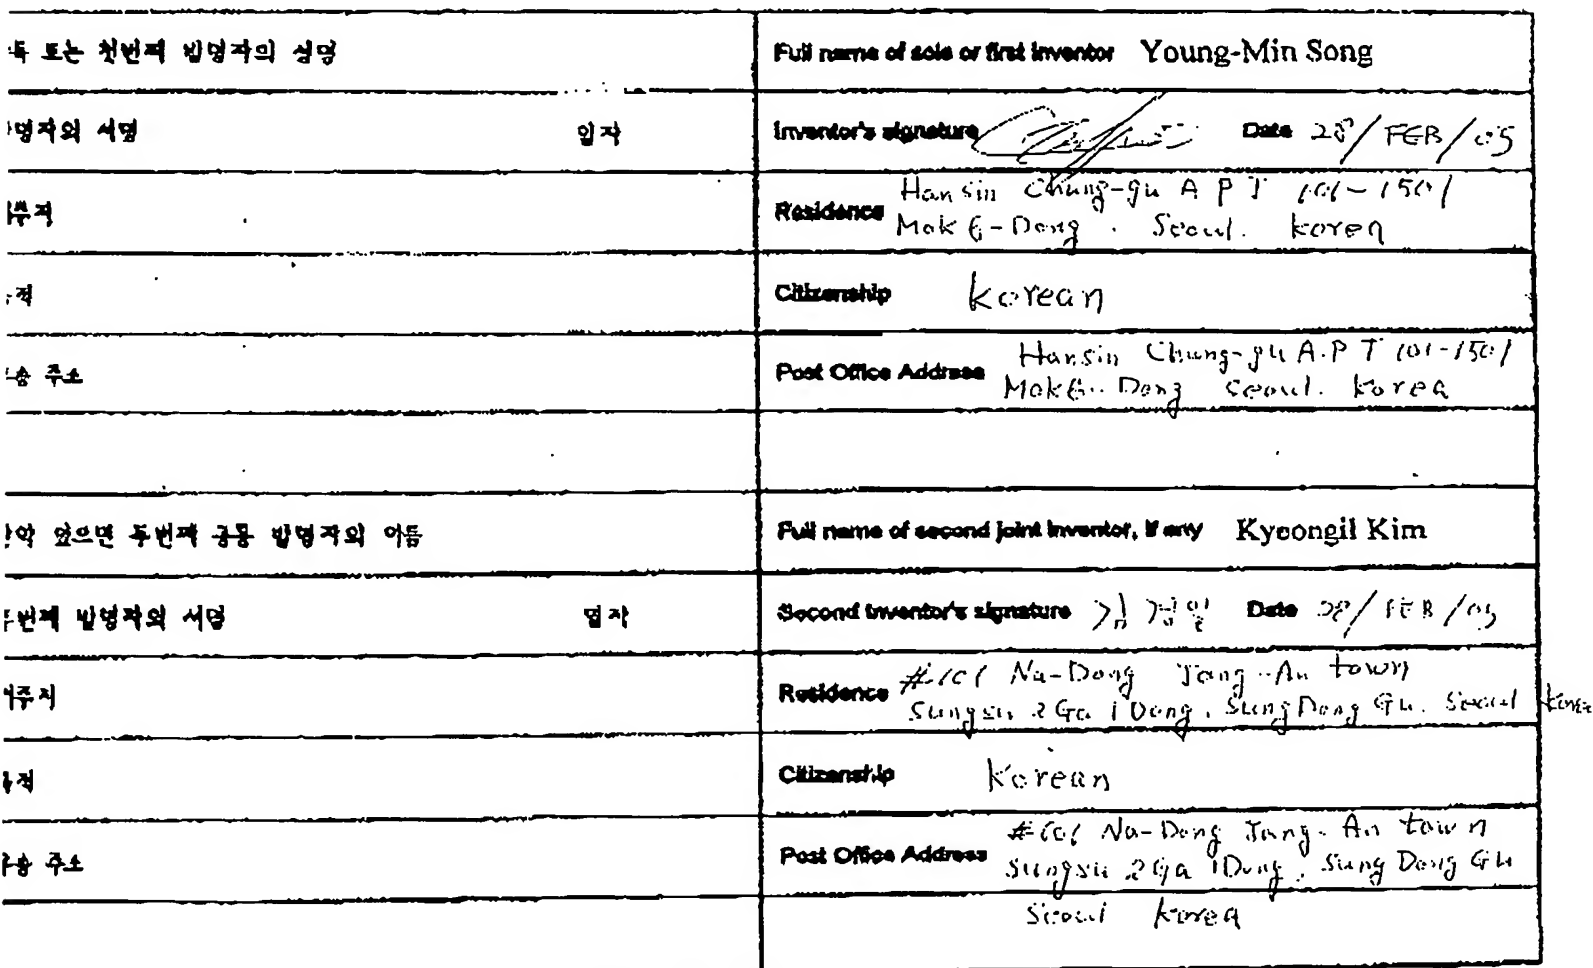 또는 첫번째 발명자의 성명
Full name of sole or first inventor Young-Min Song
발명자의 서명 일자
Inventor's signature Date 28/FEB/05
Residence Hansin Chung-gu A P T 101-1501
Mok 6-Dong. Seoul. korea
Citizenship korean
주소
Post Office Address Hansin Chung-gu A.P T 101-1501
Mok 6-Dong Seoul. korea
있으면 두번째 공동 발명자의 이름
Full name of second joint inventor, if any Kyeongil Kim
두번째 발명자의 서명 일자
Second inventor's signature 김경일 Date 28/FEB/05
Residence #101 Na-Dong Jang-An town
Sungsu 2Ga 1Dong, Sung Dong Gu. Seoul Korea
Citizenship Korean
주소
Post Office Address #101 Na-Dong Jang-An town
Sungsu 2Ga 1Dong, Sung Dong Gu
Seoul korea